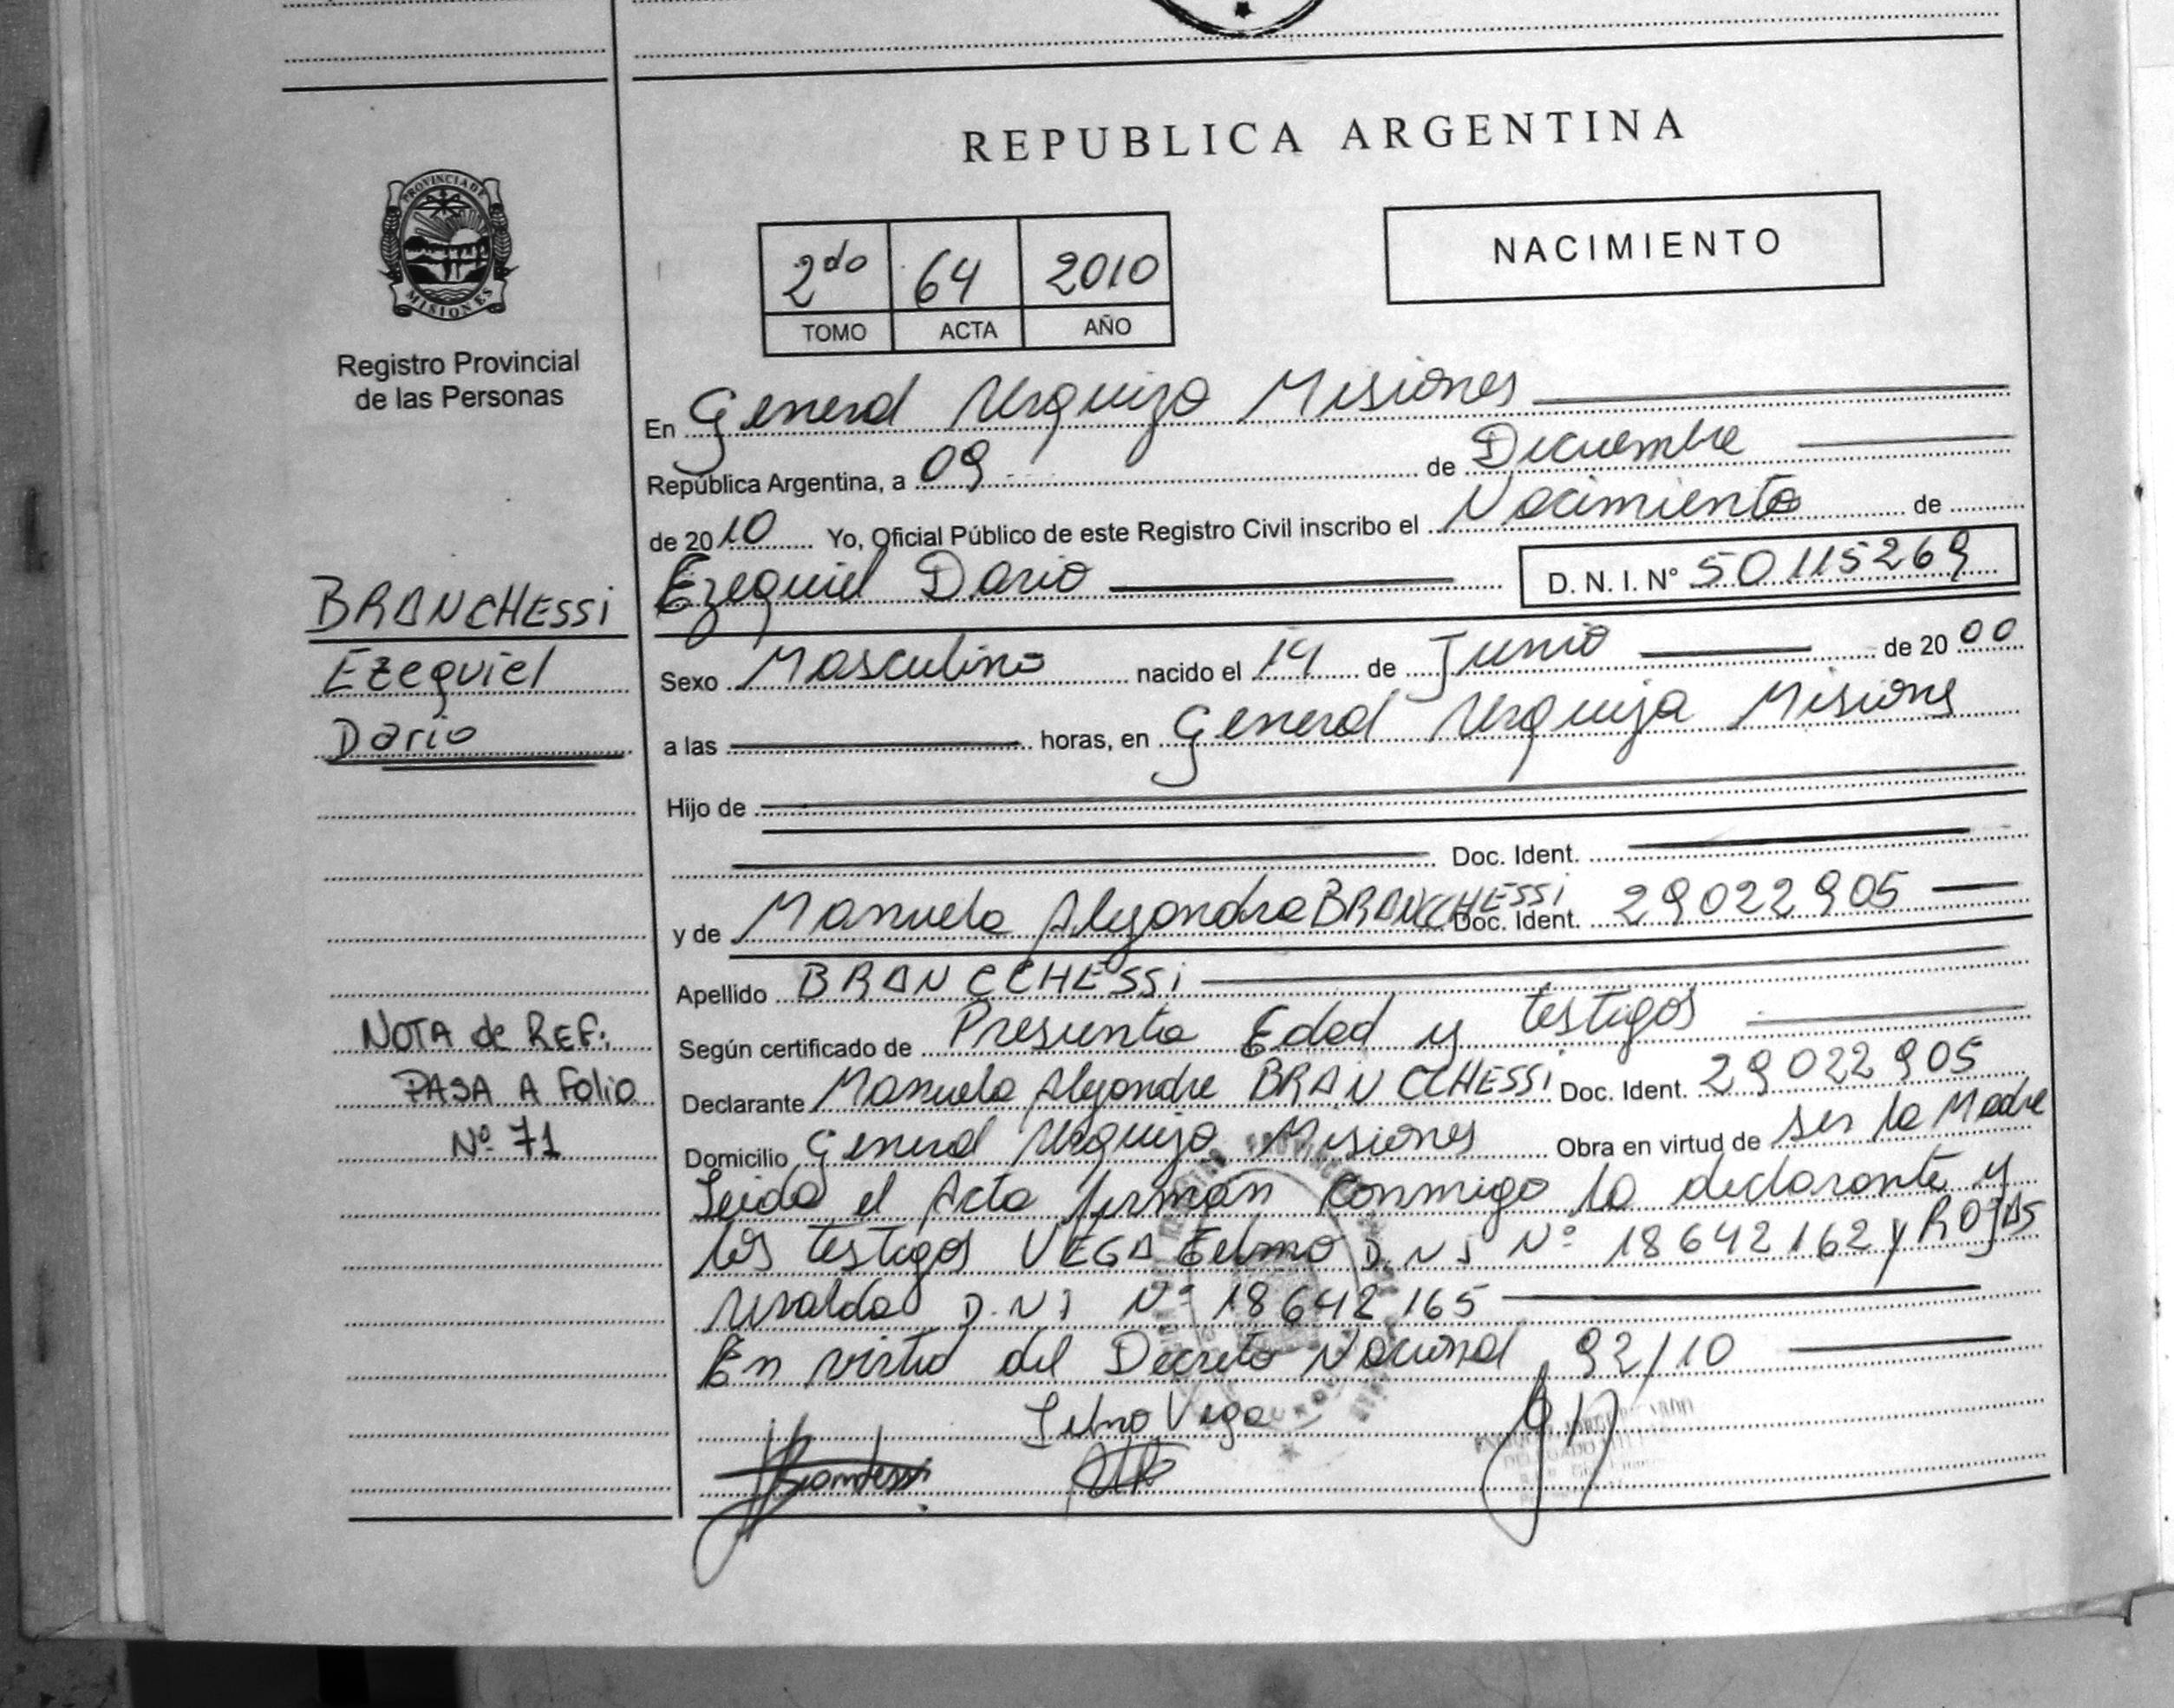 REPUBLICA ARGENTINA
PROVINCIA DE
MISIONES
Registro Provincial
de las Personas
NACIMIENTO
2do 64 2010
TOMO ACTA AÑO
En General Urquiza Misiones
República Argentina, a 09 de Diciembre
de 2010 Yo, Oficial Público de este Registro Civil inscribo el Nacimiento de
Ezequiel Dario D. N. I. Nº 50115269
BRANCHESSI
Ezequiel
Dario
Sexo Masculino nacido el 14 de Junio de 2000
a las horas, en General Urquiza Misiones
Hijo de
Doc. Ident.
y de Manuela Alejandra BRANCCHESSI Doc. Ident. 29022905
Apellido BRANCCHESSI
Según certificado de Presunta Edad y testigos
Declarante Manuela Alejandra BRANCCHESSI Doc. Ident. 29022905
Domicilio General Urquiza Misiones Obra en virtud de ser la Madre
NOTA de REF:
PASA A Folio
Nº 71
Leida el Acta firman conmigo la declarante y
los testigos VEGA Telmo D.N.I Nº 18642162 y ROJAS
Uvaldo D.N.I Nº 18642165
En virtud del Decreto Nacional 92/10
Telmo Vega